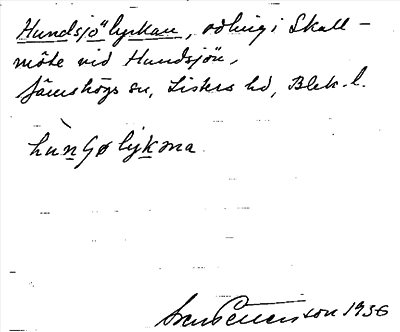 Hundsjölyckan, odling i Skall-
möte vid Hundsjön,
Jämshögs sn, Listers hd, Blek. l.
Sven Benson 1936